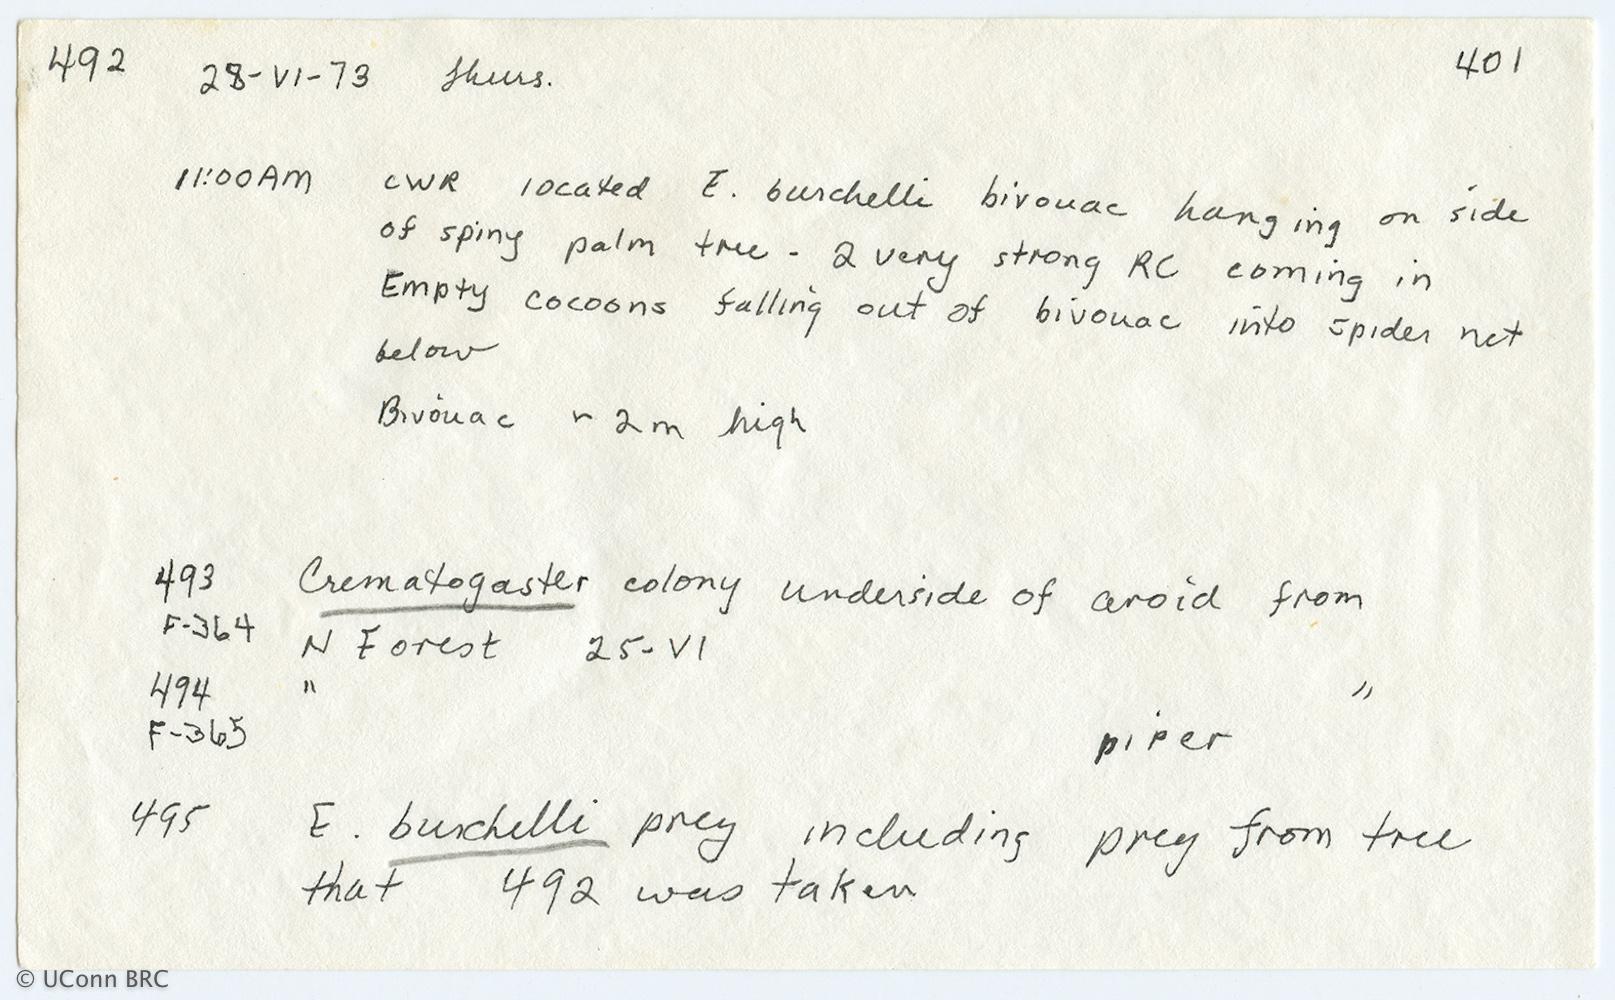 492 28-VI-73 Thurs. 401
11:00AM CWR located E. burchelli bivouac hanging on side
of spiny palm tree - 2 very strong RC coming in
Empty cocoons falling out of bivouac into spider net
below
Bivouac ~ 2m high
493 Crematogaster colony underside of aroid from
F-364 N Forest 25-VI
494 " "
F-365 piper
495 E. burchelli prey including prey from tree
that 492 was taken
© UConn BRC